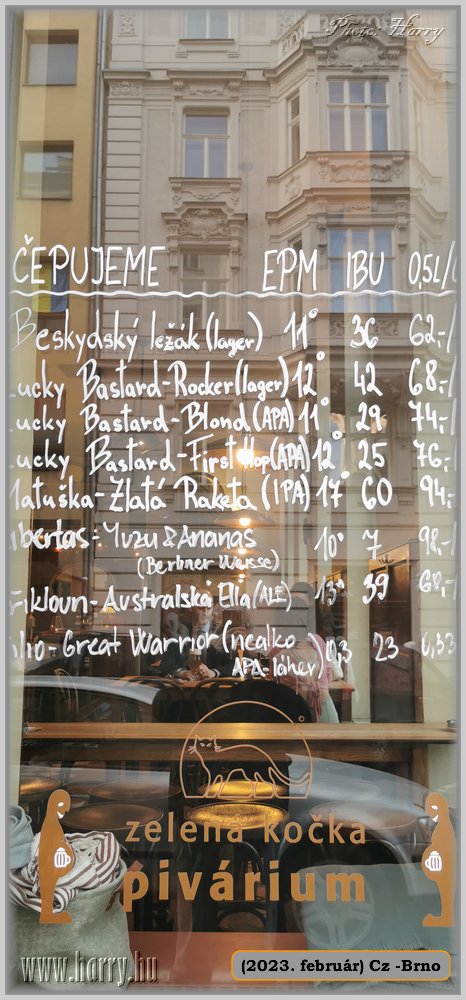 Photo: Harry
ČEPUJEME EPM IBU 0,5L/
Beskydský ležák (lager) 11° 36 62,-/
ucky Bastard-Rocker (lager) 12° 42 68,-/
ucky Bastard-Blond (APA) 11° 29 74,-/
ucky Bastard-First Hop (APA) 12° 25 76,-
Matuška-Zlatá Raketa (IPA) 17° 60 94,-
ibertas-Yuzu & Ananas 10° 7 98,-/
(Berliner Weisse)
rikloun-Australská Ella (ALE) 13° 39 68,-/
-Great Warrior (nealko 0,3 23 -0,33
APA-láhev)
zelená kočka
pivárium
www.horry.hu
(2023. február) Cz -Brno